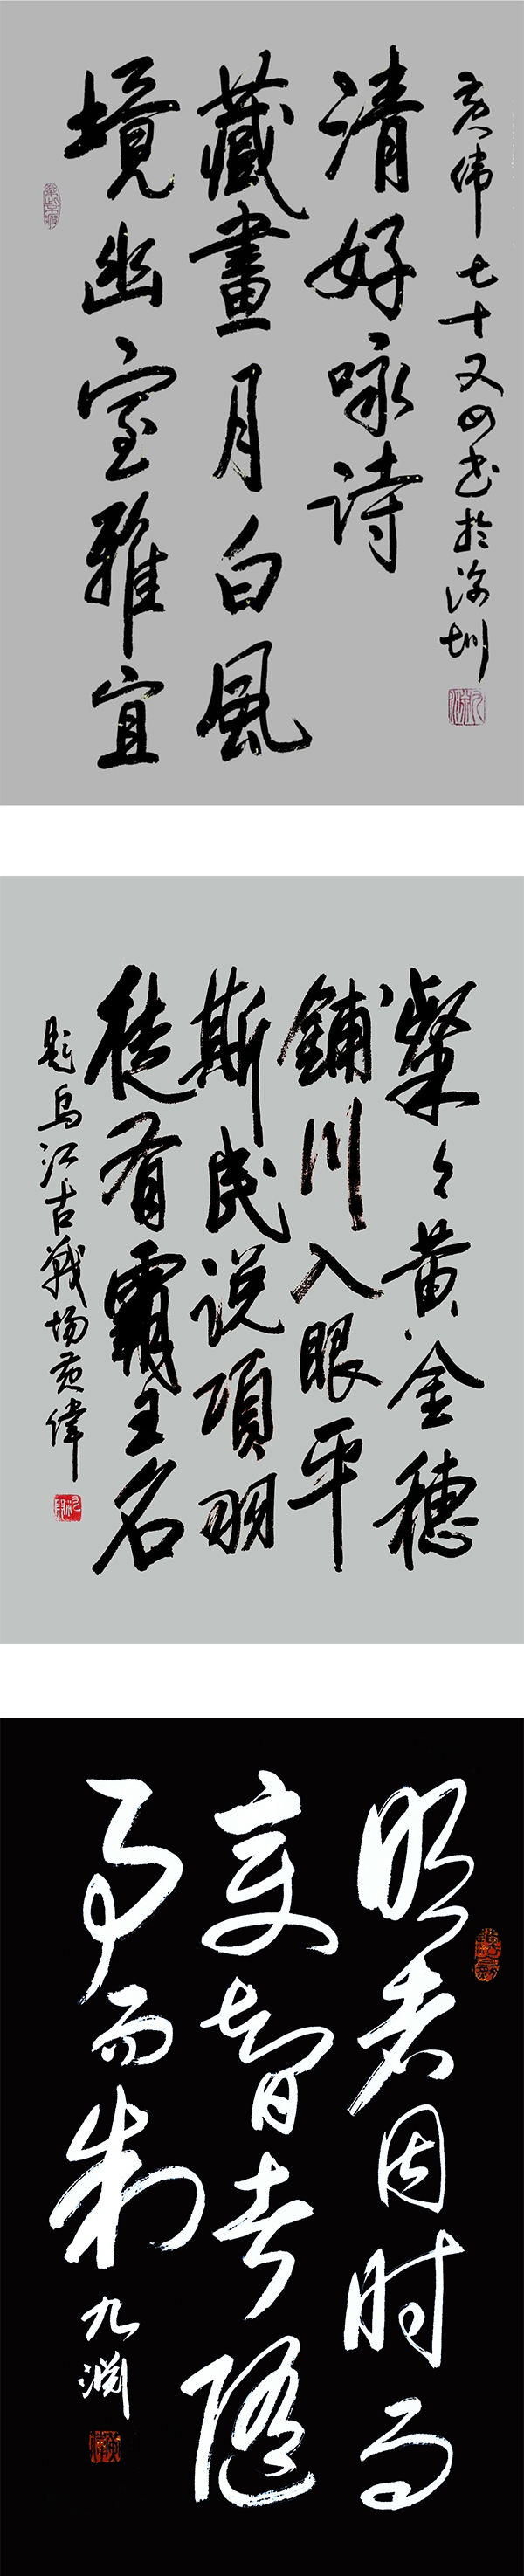 境幽室雅宜
藏畫月白風
清好咏诗
黄伟七十又四书於深圳
粲々黄金穗
鋪川入眼平
斯民说項羽
徒有霸王名
题乌江古戰场黄偉
明者因时而
变智者随
事而制九渊